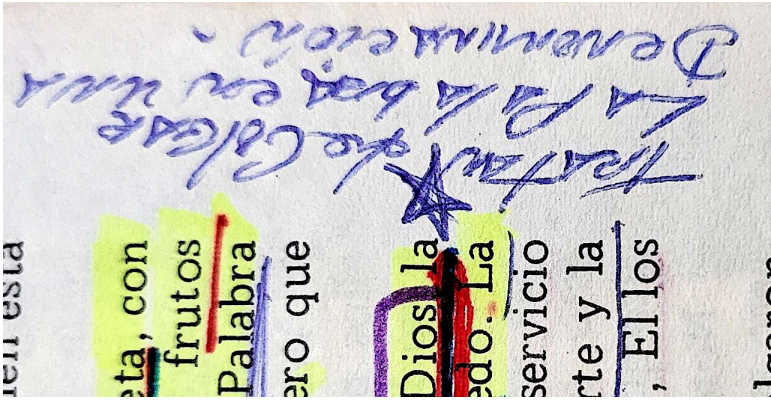 TRATAN de Colgar
La Palabra en una
Denominación.
en esta
eta, con
frutos
Palabra
ero que
Dios, la
edo. La
servicio
rte y la
, El los